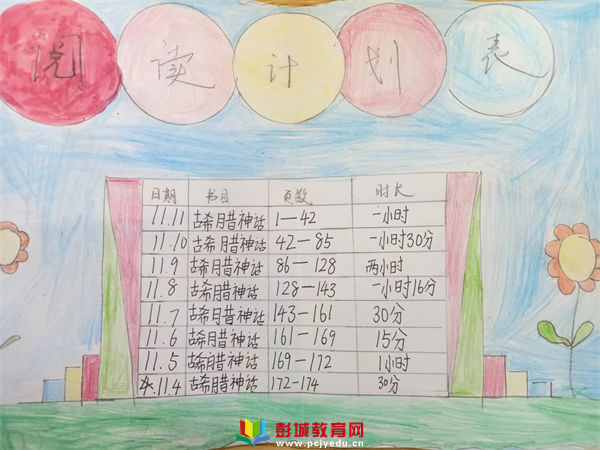 阅读计划表
日期 书目 页数 时长
11.11 古希腊神话 1—42 一小时
11.10 古希腊神话 42—85 一小时30分
11.9 古希腊神话 86—128 两小时
11.8 古希腊神话 128—143 一小时16分
11.7 古希腊神话 143—161 30分
11.6 古希腊神话 161—169 15分
11.5 古希腊神话 169—172 1小时
11.4 古希腊神话 172—174 30分
彭城教育网
www.pcjyedu.cn